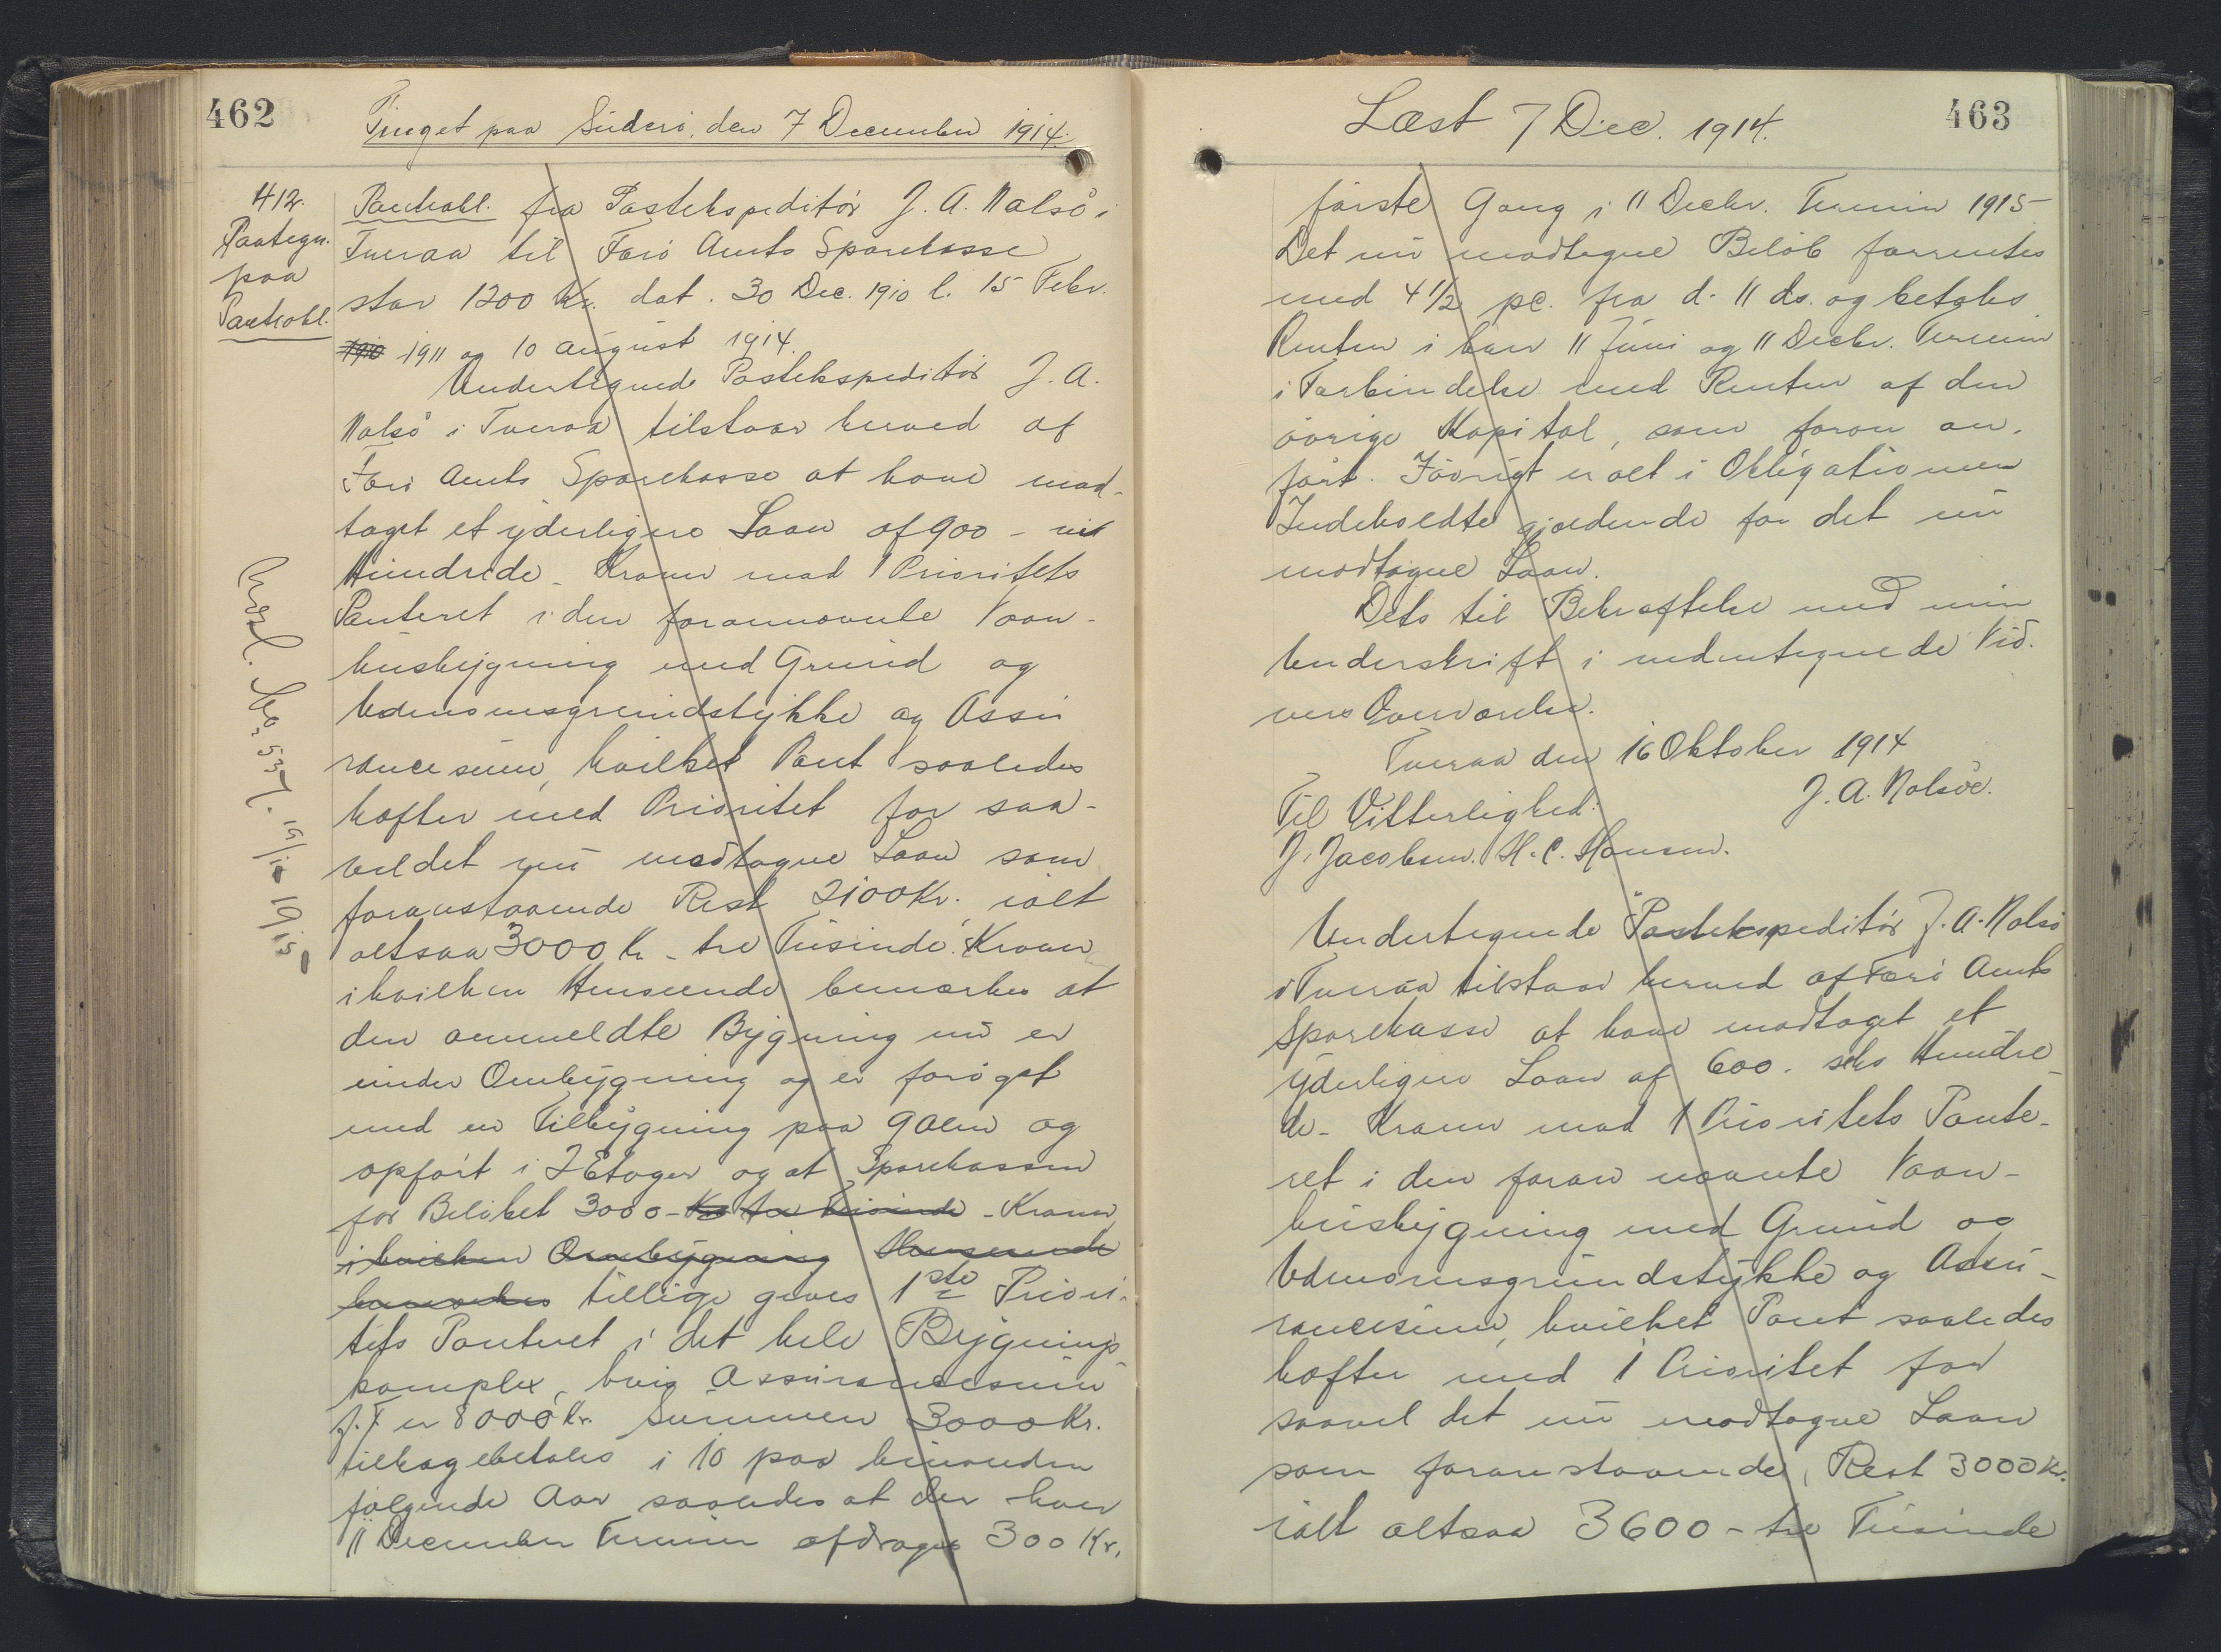 462
Tinget paa Suderö, den 7 December 1914.
412.
Paategn.
paa
Pantobl.
Pantobl. fra Postekspeditör J. A. Nolsö i
Tveraa til Færö Amts Sparekasse
stor 1200 Kr. dat. 30 Dec. 1910 l. 15 Febr.
1910 1911 og 10 August 1914.
Undertegnede Postekspeditör J. A.
Nolsö i Tveraa tilstaar herved af
Færö Amts Sparekasse at have mod-
taget et yderligere Laan af 900 - ni
Hundrede - Kroner mod 1 Prioritets
Panteret i den forannævnte Vaan-
husbygning med Grund og
Udenomsgrundstykke og Assu
rancesum, hvilket Pant saaledes
hæfter med Prioritet for saa-
vel det nu modtagne Laan som
foranstaaende Rest 2100 Kr. ialt
altsaa 3000 Kr - tre Tusinde. Kroner
i hvilken Henseende bemærkes at
den ommeldte Bygning nu er
under Ombygning og er forøget
med en Tilbygning paa 9 Alen og
opført i 2 Etager og at Sparekassen
for Beløbet 3000 - Kr tre Tusinde - Kroner
i hvilken Ombygning Henseende
bemærkes tillige gives 1ste Priori-
tets Panteret i det hele Bygnings-
komplex, hvis Assurancesum
p. T er 8000 Kr. Summen 3000 Kr.
tilbagebetales i 10 paa hinanden
følgende Aar saaledes at der hver
11 December Termin afdrages 300 Kr.
Læst 7 Dec. 1914.
463
første Gang i 11 Decbr. Termin 1915
Det nu modtagne Beløb forrentes
med 4 1/2 pc. fra d. 11 ds. og betales
Renten i hver 11 Juni og 11 Decbr. Termin
i Forbindelse med Renten af den
øvrige Kapital, som foran an-
ført. Iøvrigt er alt i Obligationen
Indeholdte gjældende for det nu
modtagne Laan.
Dets til Bekræftelse med min
Underskrift i nedentegnede Vid-
ners Overværelse.
Tveraa den 16 Oktober 1914
J. A. Nolsöe.
Til Vitterlighed:
J. Jacobsen. H. C. Hansen.
Undertegnede Postekspeditör J. A. Nolsö
i Tveraa tilstaar herved af Færö Amts
Sparekasse at have modtaget et
yderligere Laan af 600. seks Hundre-
de - Kroner mod 1 Prioritets Pante-
ret i den foran nævnte Vaan-
husbygning med Grund og
Udenomsgrundstykke og Assu-
rancesum, hvilket Pant saaledes
hæfter med 1 Prioritet for
saavel det nu modtagne Laan
som foranstaaende, Rest 3000 Kr.
ialt altsaa 3600 - tre Tusinde